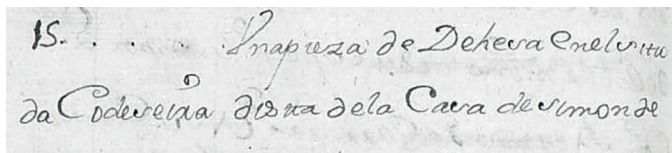 15. . . . . Vna pieza de Dehesa en el sitio
da Codeseira, dista de la Casa de simon de